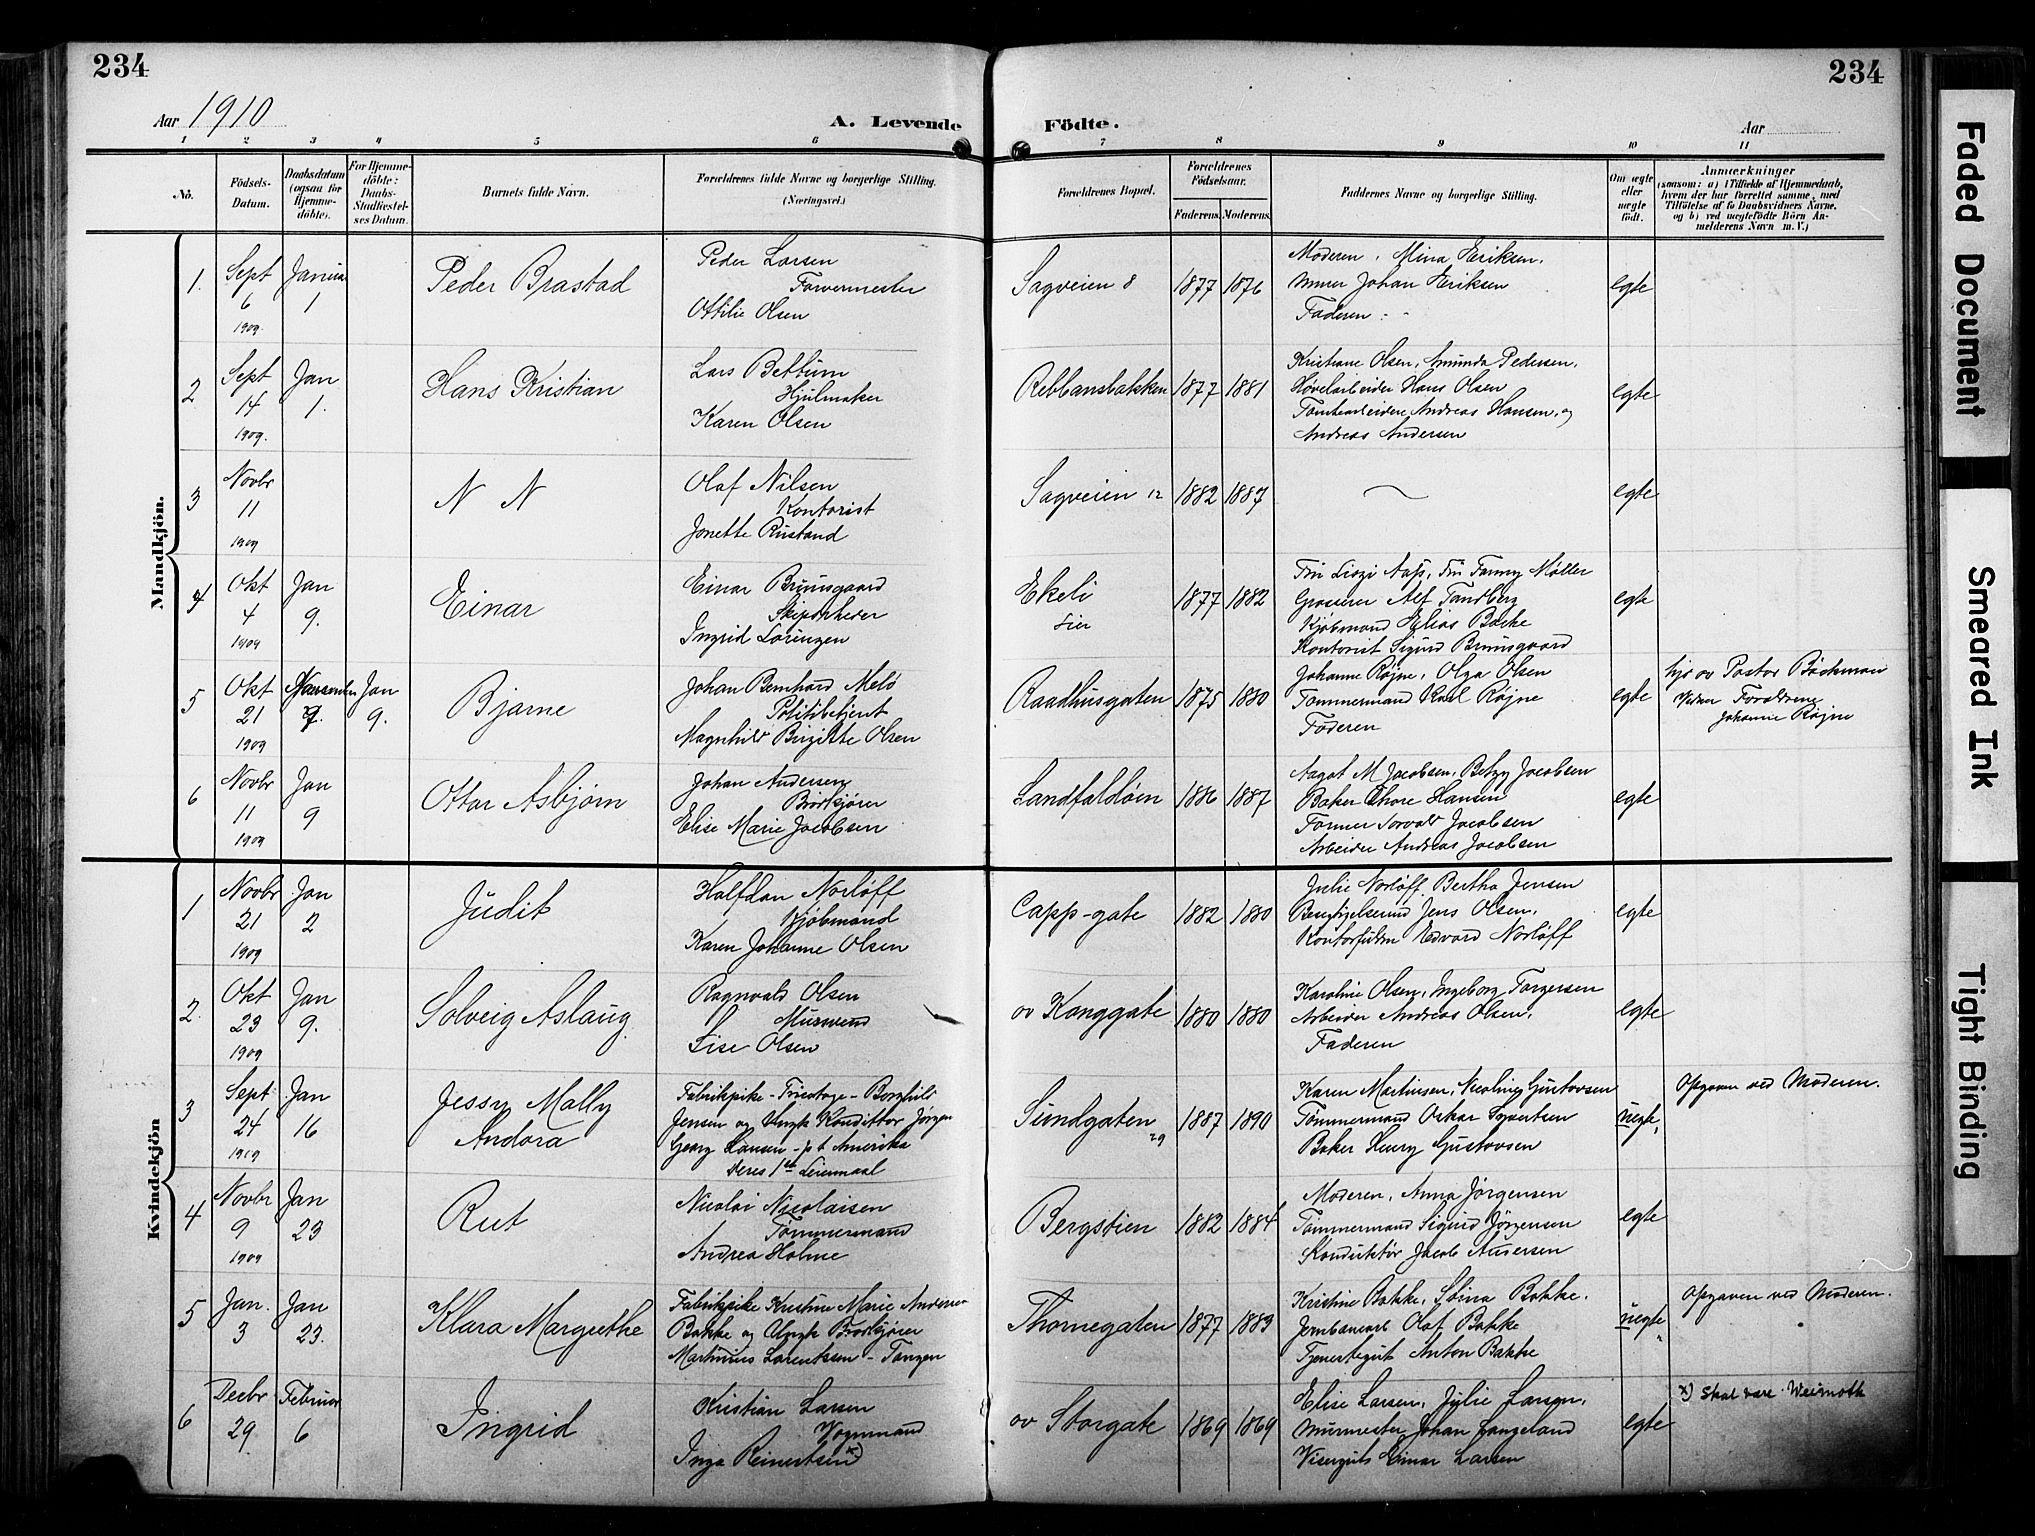 234
234
Aar 1910
A. Levende Födte.
Aar
1 2 3 4 5 6 7 8 9 10 11
No.
Födsels-Datum.
Daabsdatum (ogsaa for Hjemme-döbte).
For Hjemme-döbte: Daabs-Stadfæstel-ses Datum.
Barnets fulde Navn.
Forældrenes fulde Navne og borgerlige Stilling.
(Næringsvei.)
Forældrenes Bopæl.
Forældrenes Födselsaar.
Faderens. Moderens.
Faddernes Navne og borgerlige Stilling.
Om ægte eller uægte födt.
Anmærkninger
(saasom: a) i Tilfælde af Hjemmedaab,
hvem der har forrettet samme, med
Tilföielse af to Daabsvidners Navne,
og b) ved uægtefödte Börn An-
melderens Navn m. V.)
Mandkjön.
1. Sept 6 1909. Januar 1
Peder Brastad
Peder Larsen
Farvermester
Ottilie Olsen
Sagveien 8
1877 1876
Moderen, Mina Eriksen,
Murer Johan Eriksen
Faderen
egte
2 Sept 14 1909. Jan 1.
Hans Kristian
Lars Bettum
Hjulmaker
Karen Olsen
Rebbansbakken
1877 1881
Kristiane Olsen, Amunda Pedersen,
Høvelarbeider Hans Olsen
Tomtearbeidere Andreas Hansen, og
Andreas Andersen
egte
3 Novbr 11 1909
N N
Olaf Nilsen
Kontorist
Jonette Rustand
Sagveien 12
1882 1887
egte
4 Okt 4 1909 Jan 9.
Einar
Einar Bruusgaard
Skipsrheder
Ingrid Lorentzen
Ekeli
Lier
1877 1882
Fru Liszi Aass, Fru Fanny Møller
Grosserer Alf Tandberg
Kjøbmand Elias Bache
Kontorist Sigurd Bruusgaard
egte
5 Okt 21 1909 7. Jan 9.
Bjarne
Johan Bernhard Melø
Politibetjent
Magnhild Birgitte Olsen
Raadhusgaten
1875 1880
Johanne Røjne, Olga Olsen
Tømmermand Karl Røjne
Faderen
egte
hjd av Pastor Bøckman
Vidner Foreldrene
Johanne Røjne
6 Novbr 11 1909 Jan 9
Ottar Asbjørn
Johan Andersen
Brødkjører
Elise Marie Jacobsen
Landfaldøen
1886 1887
Aagot M Jacobsen, Betzy Jacobsen
Baker Thore Hansen
Former Torvald Jacobsen
Arbeider Andreas Jacobsen
egte
Kvindekjön
1 Novbr 21 1909 Jan 2
Judit
Halfdan Norløff
Kjøbmand
Karen Johanne Olsen
Capp-gate
1882 1880
Julie Norløff, Bertha Jensen
Jens Olsen,
Edvard Norløff
egte
2. Okt 23 1909 Jan 9.
Solveig Aslaug.
Ragnvald Olsen
Mursvend
Lise Olsen
øv Konggate
1880 1880
Karoline Olsen, Ingeborg Torgersen
Arbeider Andreas Olsen,
Faderen
egte
3 Sept 24 1909 Jan 16
Jessy Mally
Andora
Fabrikpike - Tricotage - Borghild
Jensen og Ungk Konditor Jørgen
Georg Hansen - p t Amerika
Deres 1ste Leiermaal
Sundgaten 29
1887 1890
Karen Martinsen, Nicoline Gustavsen
Tømmermand Oskar Syvertsen
Baker Henry Gustavsen
uegte,
Opgaven ved Moderen.
4 Novbr 9 1909 Jan 23
Rut
Nicolai Nicolaisen
Tømmermand
Andrea Holme
Bergstien
1882 1884
Moderen, Anna Jørgensen
Tømmermand Sigurd Jørgensen
Konduktør Jacob Andersen
egte
5 Jan. 3 Jan 23.
Klara Margrethe
Fabrikpike Kristine Marie Andersen
Bakke og Ungk Brødkjører
Martinius Larentssen - Tangen
Thornegaten
1877 1889
Kristine Bakke, Stina Bakke,
Jernbanearb Olaf Bakke
Tjenestegut Anton Bakke
uegte
Opgaven ved Moderen.
6 Decbr 29 Februar 6
Ingrid
Kristian Larsen
Vognmand
Inga Reinertsen x)
øv Storgate
1869 1869
Elise Larsen, Julie Larsen,
Murmester Johan Langeland
Visergut Einar Larsen
egte
x) Skal være Weimoth
Faded Document
Smeared Ink
Tight Binding